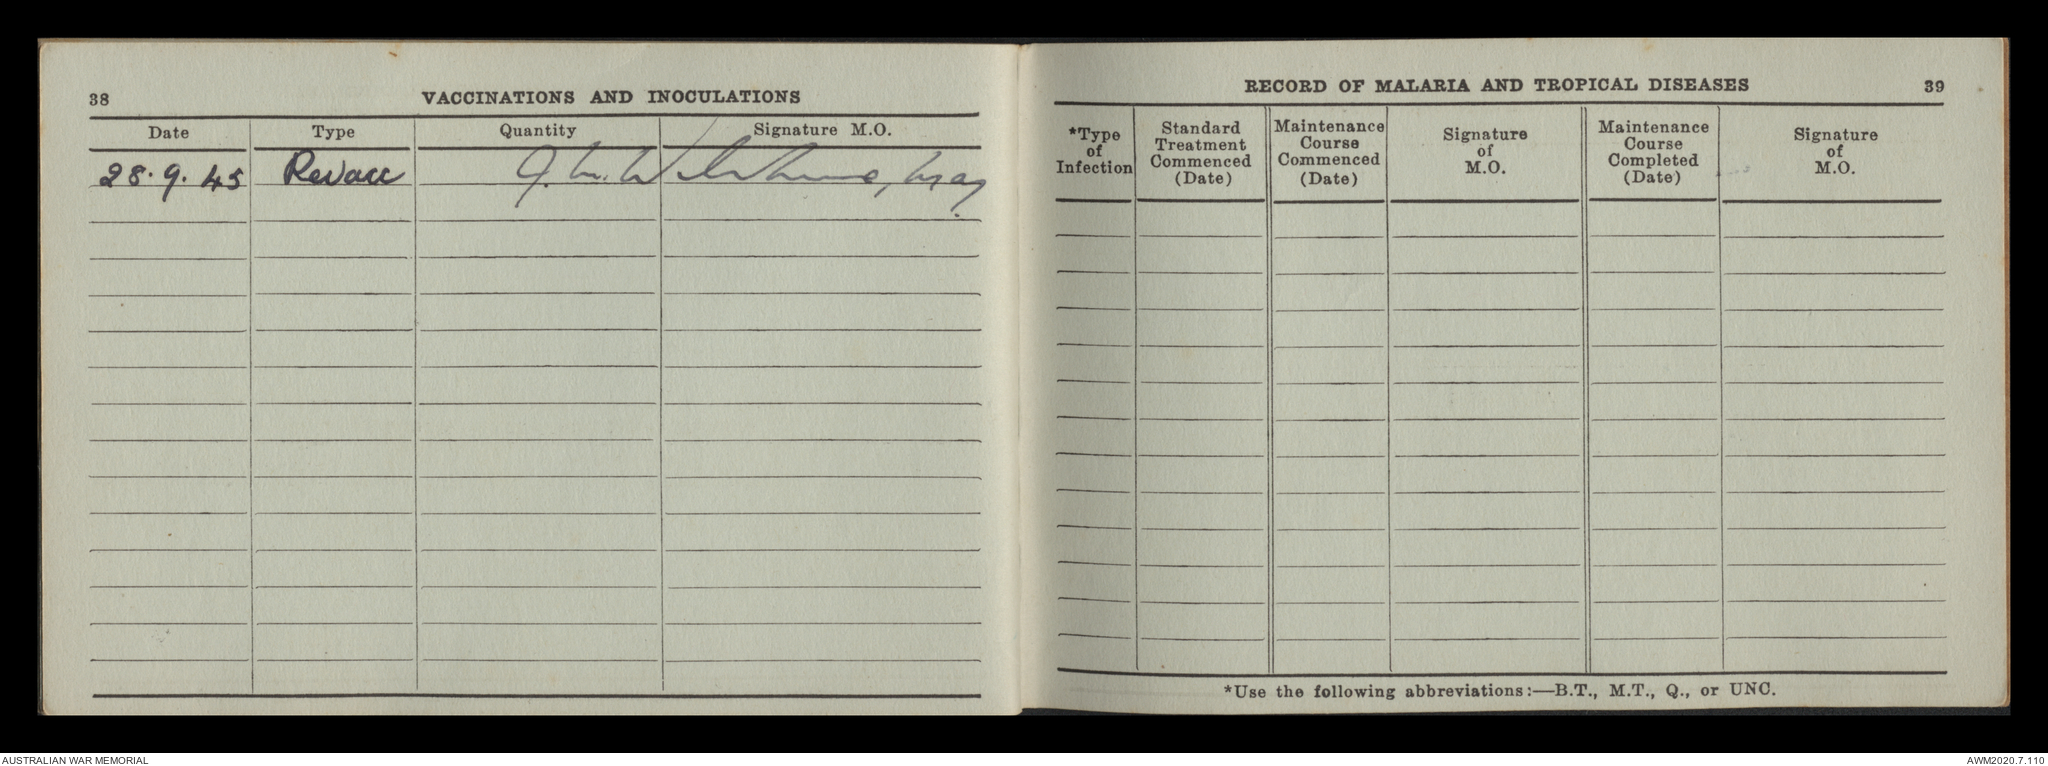 38
VACCINATIONS AND INOCULATIONS
Date Type Quantity Signature M.O.
28.9.45 Revacc
RECORD OF MALARIA AND TROPICAL DISEASES 39
*Type of Infection
Standard Treatment Commenced (Date)
Maintenance Course Commenced (Date)
Signature of M.O.
Maintenance Course Completed (Date)
Signature of M.O.
*Use the following abbreviations:—B.T., M.T., Q., or UNC.
AUSTRALIAN WAR MEMORIAL
AWM2020.7.110